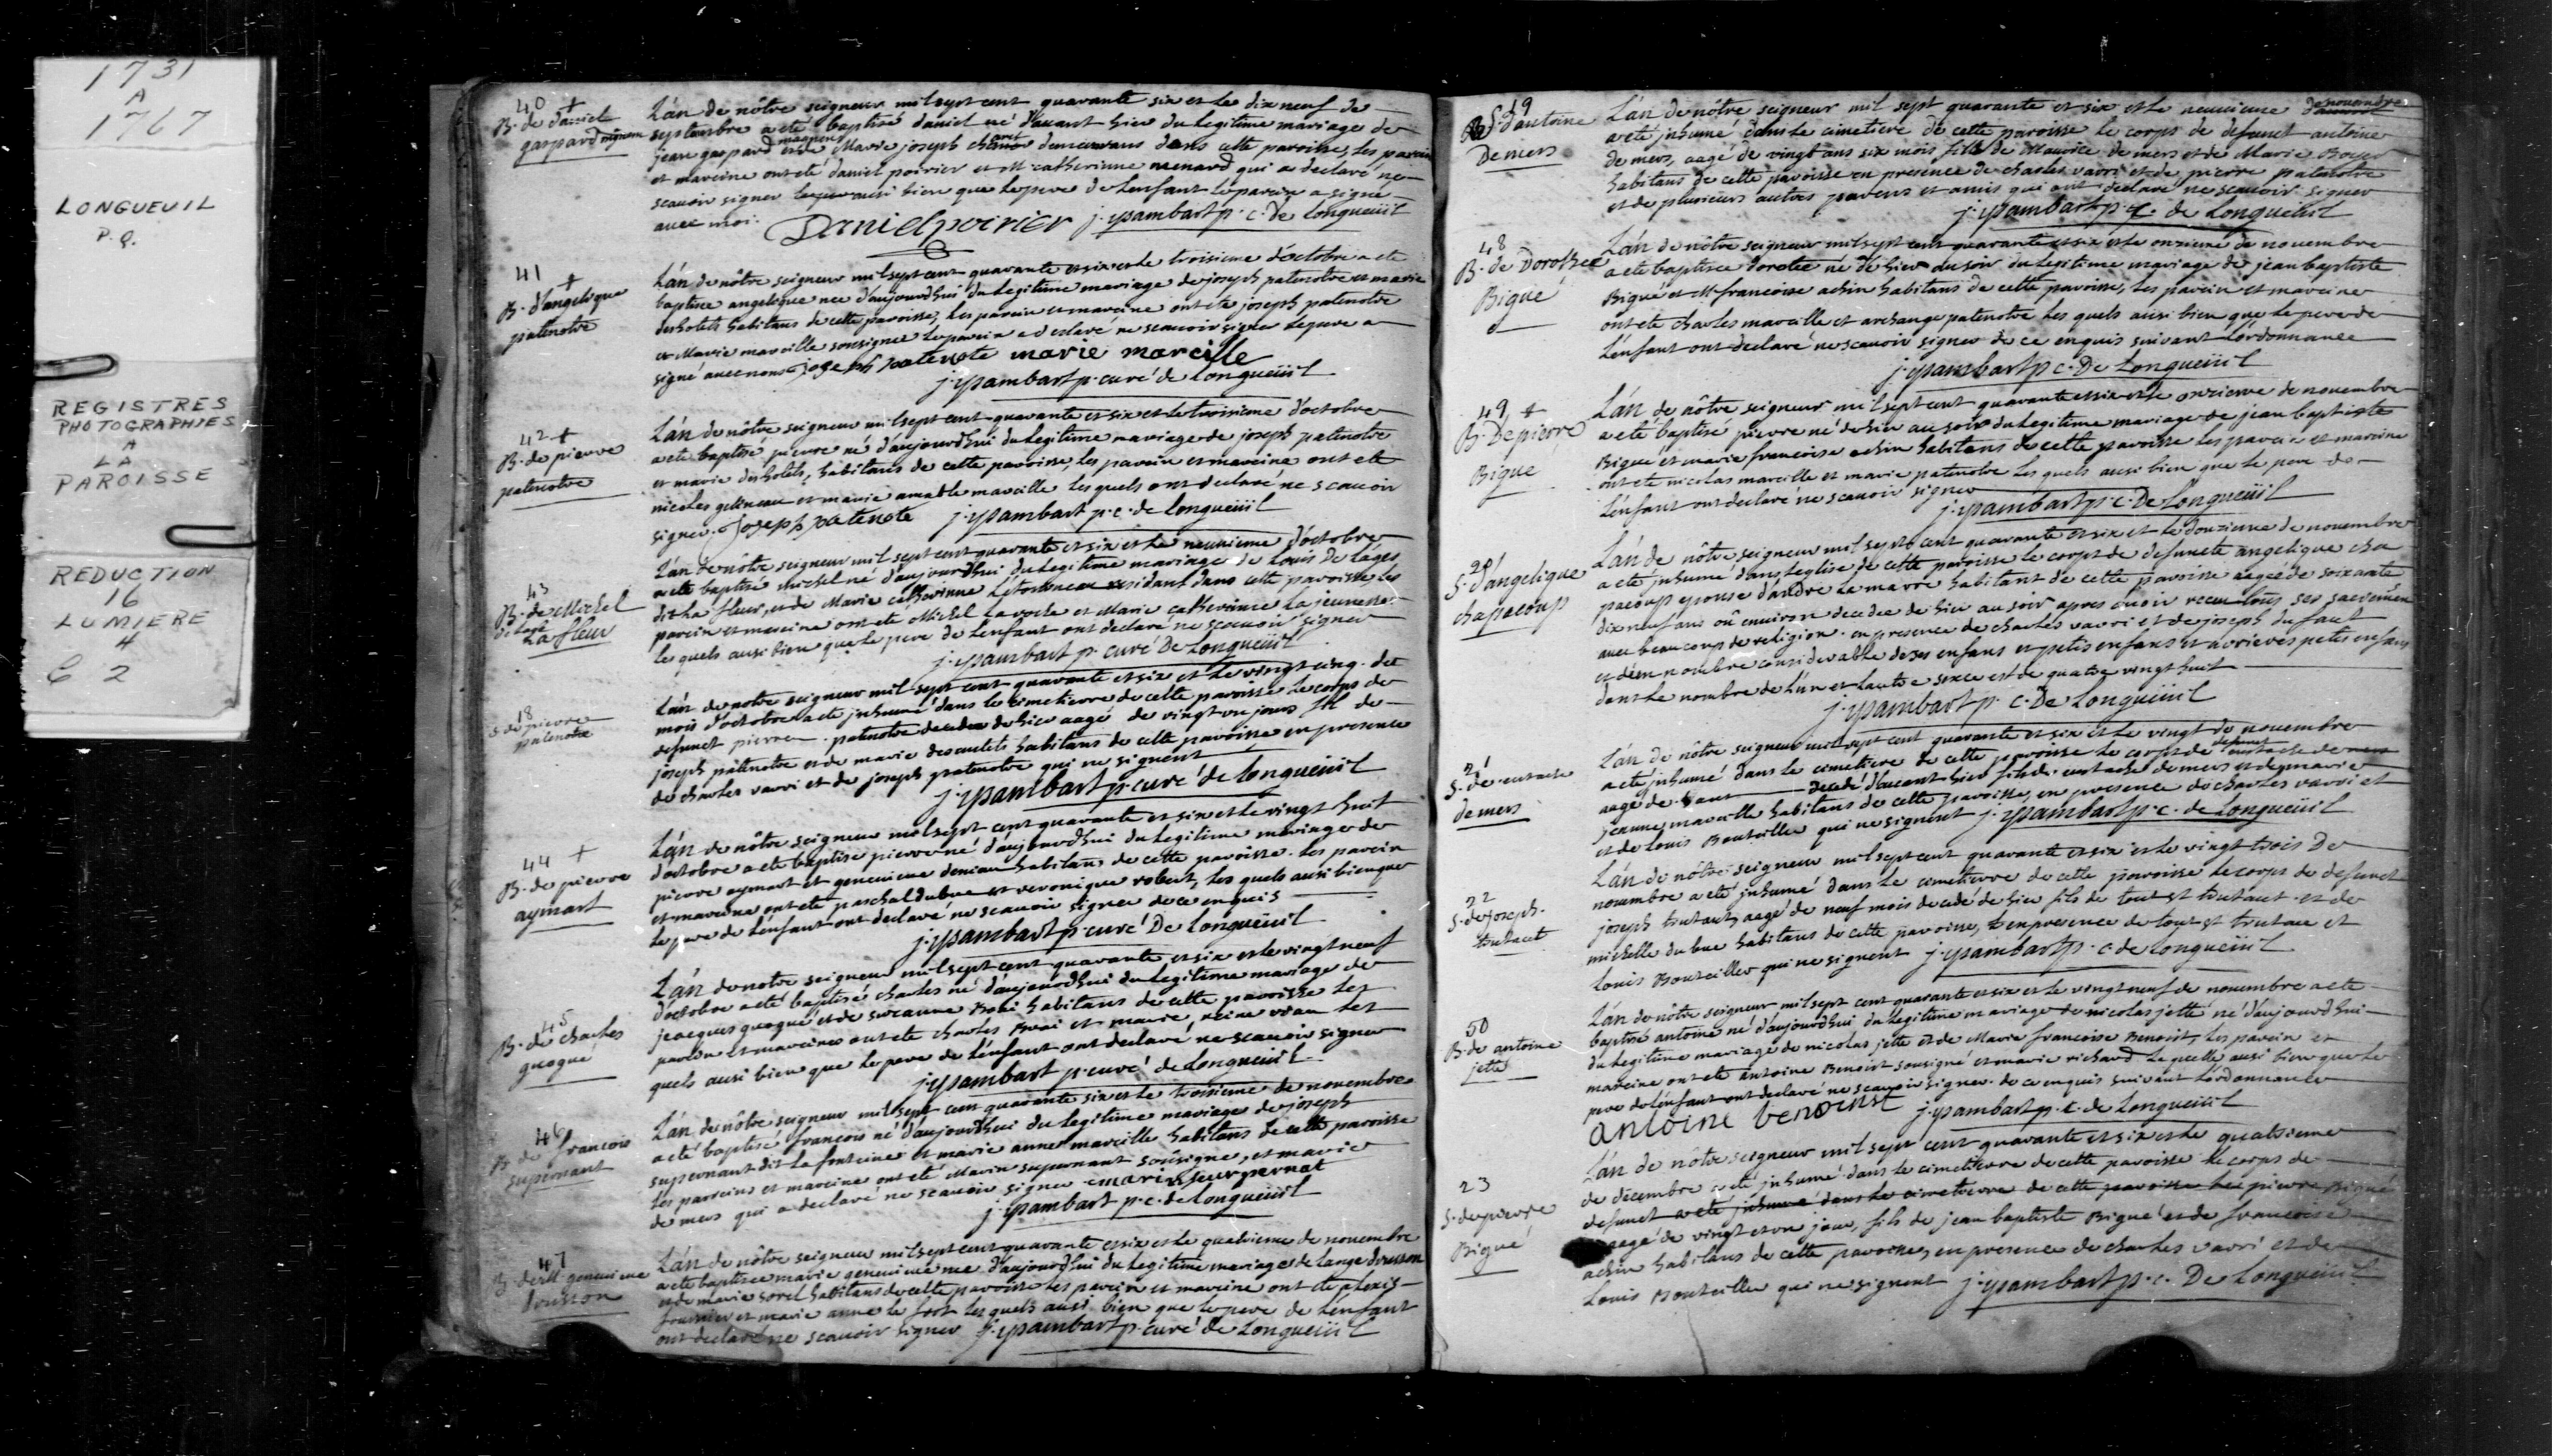 1731
A
1767
LONGUEUIL
P.Q.
REGISTRES
PHOTOGRAPHIES
A
LA
PAROISSE
REDUCTION
16
LUMIERE
4
C 2
40 +
B. de daniel
gaspard
L'an de nôtre seigneur mil sept cent quarante six et le dix neuf de
septembre a eté baptisé daniel né d'auant hier du legitime mariage de
jean gaspard et de Marie joseph demeurans dans cette paroisse, les parein
et mareine ont eté daniel poirier et M catherinne menard qui a declaré ne
scauoir signer aussi bien que le pere de l'enfant le parein a signé
auec moi. Daniel poirier j. ysambart p. c. De longueüil
41 +
B. d'angelique
patenotre
L'an de nôtre seigneur mil sept cent quarante et six et le troisieme d'octobre a eté
baptisee angelique nee d'aujourdhui du legitime mariage de joseph patenotre et marie
deshotels habitans de cette paroisse, les parein et mareine ont eté joseph patenotre
et Marie marcille sousigné le parein a declaré ne scauoir signer le pere a
signé auec nous joseph patenote marie marcille
j. ysambart p. curé de longueüil
42 +
B. de pierre
patenotre
L'an de nôtre seigneur mil sept cent quarante et six et le troisieme d'octobre
a eté baptisé pierre né d'aujourdhui du legitime mariage de joseph patenotre
et marie deshotels, habitans de cette paroisse, les parein et mareine ont eté
nicolas gelineau et marie amable marcille les quels ont declaré ne scauoir
signer. Joseph patenote j. ysambart p. c. de longueüil
43
B. de Michel
de lage
La fleur
L'an de nôtre seigneur mil sept cent quarante et six et le neuuieme d'octobre
a eté baptisé michel né d'aujourdhui du legitime mariage de Louis De Lages
dit La fleur, et de Marie catherinne Létourneau residant dans cette paroisse les
parein et mareine ont eté Michel La roche et Marie catherinne La jeunesse
les quels ausi bien que le pere de l'enfant ont declaré ne scauoir signer
j. ysambart p. curé De Longueüil
18
S de pierre
patenotre
L'an de notre seigneur mil sept cent quarante et six et le vingt cinq du
mois d'octobre a eté jnhumé dans le cimetierre de cette paroisse le corps de
defunct pierre patenotre decedee de hier aagé de vingt un jours fil de
joseph patenotre et de marie desautels habitans de cette paroisse en presence
de charles varri et de joseph patenotre qui ne signent
j. ysambart p. curé de longueüil
44 +
B. de pierre
aymart
L'an de nôtre seigneur mil sept cent quarante et six et le vingt huit
d'octobre a eté baptisé pierre né d'aujourdhui du legitime mariage de
pierre aymart et geneuieue deniau habitans de cette paroisse. Les parein
et mareine ont eté paschal dubuc et veronique robert, les quels ausi bien que
le pere de l'enfant ont declaré ne scauoir signer de ce enquis
j. ysambart p. curé De longueüil
45
B. de charles
guogué
L'an de notre seigneur mil sept cent quarante et six et le vingt neuf
d'octobre a eté baptisé charles né d'aujourdhui du legitime mariage de
jeacques guogué et de suzanne habitans de cette paroisse les
parein et mareine ont eté charles et marie, reine viau les
quels ausi bien que le pere de l'enfant ont declaré ne scauoir signer
j. ysambart p. curé de longueüil
46
B. de francois
supernant
L'an de nôtre seigneur mil sept cent quarante six et le troisieme de nouembre
a eté baptisé francois né d'aujourdhui du legitime mariage de joseph
supernant dit la fonteine et marie anne marcille habitans de cette paroisse
les parreins et mareine ont eté Marin supernant sousigné, et marie
de mers qui a declaré ne scauoir signer marin seurpernat
j. ysambart p. c. de longueüil
47
B. de M geneuieue
drusson
L'an de nôtre seigneur mil sept cent quarante et six et le quatrieme de nouembre
a eté baptisee marie geneuieue nee d'aujourdhui du legitime mariage de Lange drusson
et de marie sorel habitans de cette paroisse les parein et mareine ont eté alexis
fournier et marie anne le fort les quels ausi bien que le pere de l'enfant
ont declaré ne scauoir signer j. ysambart p. curé de Longueüil
19
S d'antoine
De mers
L'an de nôtre seigneur mil sept quarante et six et le neuuieme de nouembre
a eté jnhumé dans le cimetiere de cette paroisse le corps de defunct antoine
de mers, aagé de vingt ans six mois fils de Maurice de mers et de Marie Boyer
habitans de cette paroisse en presence de charles varri et de pierre patenotre
et de plusieurs autres parens et amis qui ont declaré ne scauoir signer
j. ysambart p. c. de longueüil
48
B. de Dorothee
Bigué
L'an de nôtre seigneur mil sept cent quarante et six et le onzieme de nouembre
a eté baptisee dorotee né de hier au soir du legitime mariage de jean baptiste
Bigué et M francoise achin habitans de cette paroisse, les parein et mareine
ont eté charles marcille et archange patenotre les quels ausi bien que le pere de
l'enfant ont declaré ne scauoir signer de ce enquis suivant l'ordonnance
j. ysambart p c. De Longueüil
49 +
B. De pierre
Bigué
L'an de nôtre seigneur mil sept cent quarante et six et le onzieme de nouembre
a eté baptisé pierre né de hier au soir du legitime mariage de jean baptiste
Bigué et marie francoise achin habitans de cette paroisse les parein et mareine
ont eté nicolas marcille et marie patenotre les quels ausi bien que le pere de
l'enfant ont declaré ne scauoir signer
j. ysambart p. c. De Longueüil
20
S. d'angelique
chapacoup
L'an de nôtre seigneur mil sept cent quarante et six et le douzieme de nouembre
a eté jnhumé dans l'eglise de cette paroisse le corps de defuncte angelique cha
pacoup epouse d'andre Le marre habitant de cette paroisse aagée de soixante
dix neuf ans oü enuiron decedee de hier au soir apres auoir receu tous ses sacremens
auec beaucoup de religion. en presence de charles varri et de joseph du faut
et d'un nombre considerable de ses enfans et petits enfans et arrieres petis enfans
dont le nombre de l'un et l'autre sexce est de quatre vingt huit
j. ysambart p. c. De Longueüil
21
S. de eustache
demers
L'an de nôtre seigneur mil sept cent quarante et six et le vingt de nouembre
a eté jnhumé dans le cimetiere de cette paroisse le corps de defunct eustache de mers
aagé de decedé d'auant hier fils de eustache demers et de marie
jeanne marcille habitans de cette paroisse, en presence de charles varri et
et de Louis Bouteiller qui ne signent j. ysambart p. c. de Longueüil
22
S. de joseph
trutaut
L'an de nôtre seigneur mil sept cent quarante et six et le vingt trois De
nouembre a eté jnhumé dans le cimetierre de cette paroisse le corps de defunct
joseph trutaut, aagé de neuf mois decedé de hier fils de toust trutaut et de
michelle dubuc habitans de cette paroisse, en presence de toust trutau et
Louis Bouteiller qui ne signent j. ysambart p. c. de Longueüil
50
B. de antoine
jette
L'an de nôtre seigneur mil sept cent quarante et six et le vingt neuf de nouembre a eté
baptisé antoine né d'aujourdhui du legitime mariage de nicolas jetté né d'aujourdhui
du legitime mariage de nicolas jette et de Marie francoise Benoist, les parein et
mareine ont eté antoine Benoist sousigné et marie richard la quelle ausi bien que le
pere de l'enfant ont declaré ne scauoir signer. de ce enquis suivant l'ordonnance
antoine benoinst j. ysambart p. c. de Longueüil
23
S. de pierre
Bigué
L'an de nôtre seigneur mil sept cent quarante et six et le quatrieme
de decembre a eté jnhumé dans le cimetierre de cette paroisse le corps de
defunct a eté jnhumé dans le cimetierre de cette paroisse pierre Bigué
aagé de vingt et un jour, fils de jean baptiste Bigué et de francoise
achin habitans de cette paroisse, en presence de charles varri et de
Louis Bouteiller qui ne signent j. ysambart p. c. De Longueüil